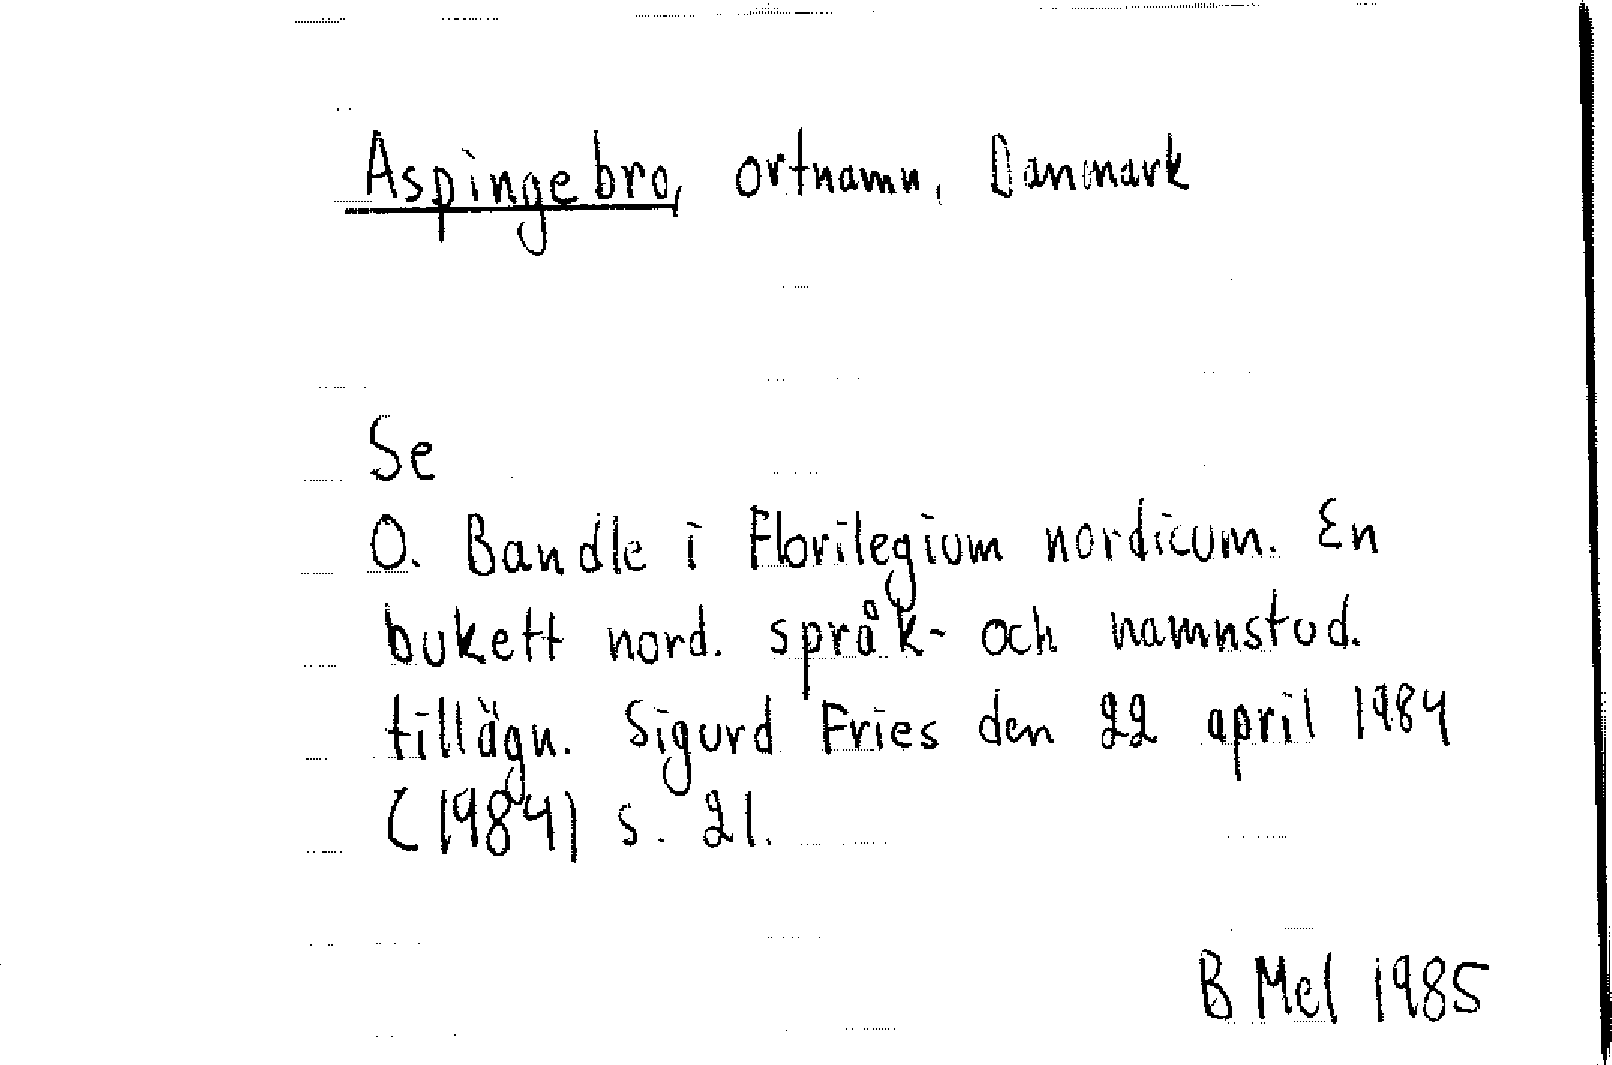 Aspingebro, ortnamn, Danmark
Se
O. Bandle i Florilegium nordicum. En
bukett nord. språk- och namnstud.
tillägn. Sigurd Fries den 22 april 1984
(1984) s. 21.
B Mel 1985